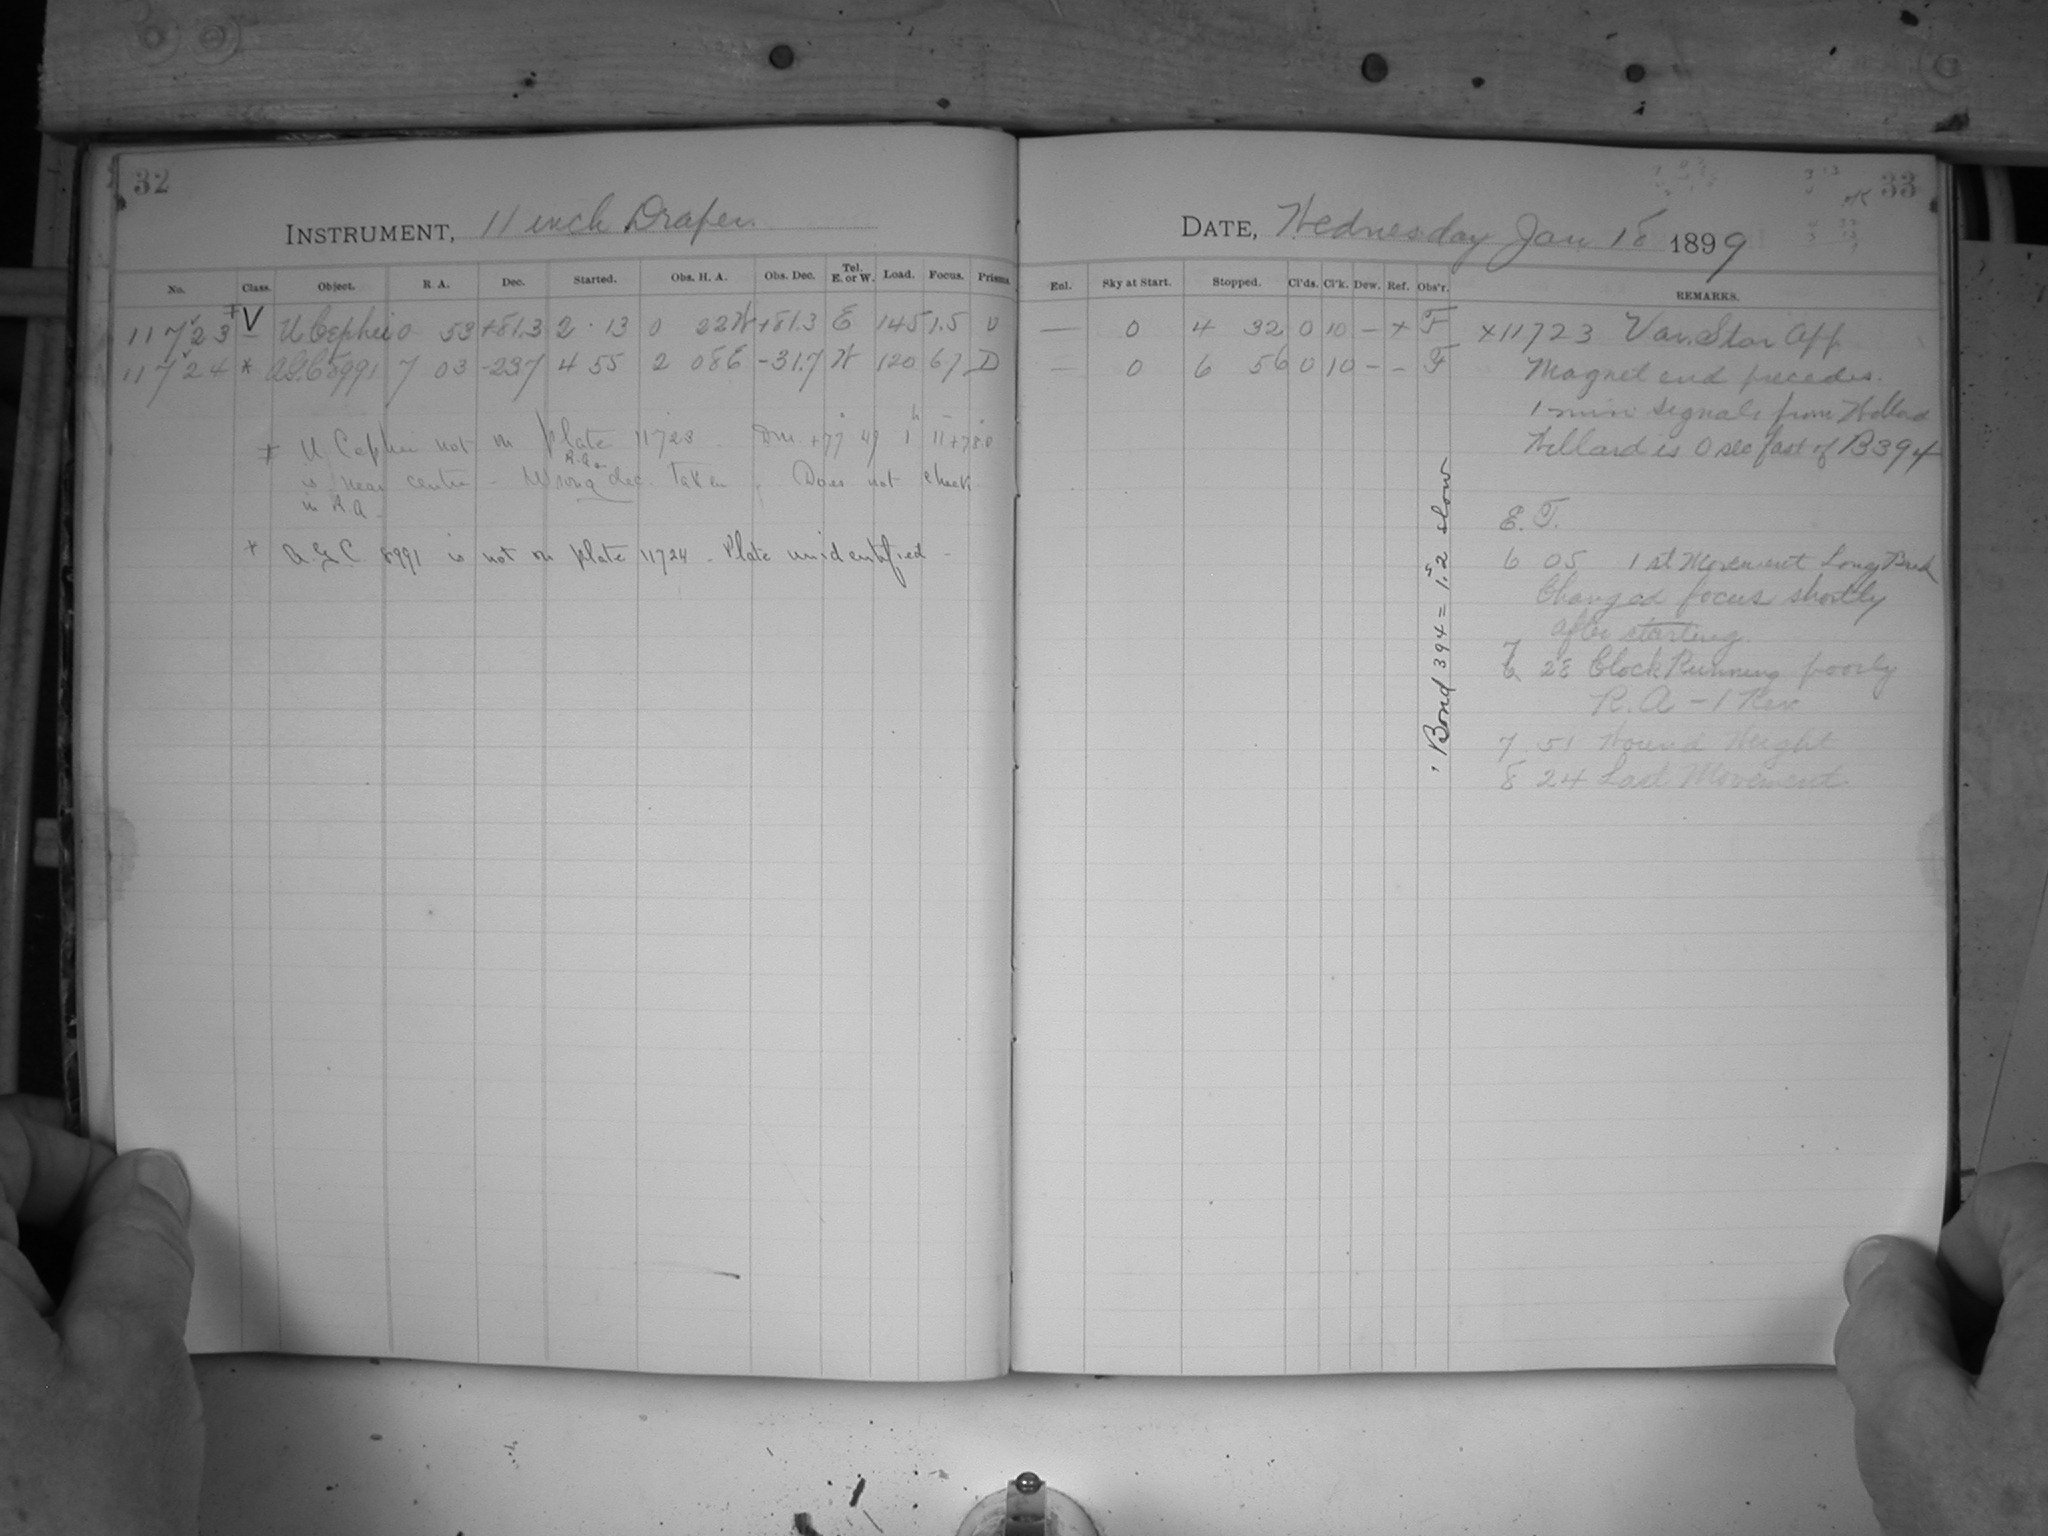 32
INSTRUMENT, 11 inch Draper.
No. Class. Object. R. A. Dec. Started. Obs. H. A. Obs. Dec. Tel. E. or W. Load. Focus. Prisms.
11723 V U Cephei 0 53 +81.3 2 13 0 22W +81.3 E 145 1.5 0
11724 * A.G.C. 8991 7 03 -23.7 4 55 2 08E -31.7 W 120 6.7 D
U Cephei not on plate 11723. Dm +77° 49 1h 11 +78.0
R.A. or
is near centre - Wrong dec. taken. Does not check
in R.A.
+ A.G.C. 8991 is not on plate 11724 - Plate unidentified -
33
DATE, Wednesday Jan 18 1899
Enl. Sky at Start. Stopped. Cl'ds. Cl'k. Dew. Ref. Obs'r. REMARKS.
— 0 4 32 0 10 - + F x11723 Var. Star App
— 0 6 56 0 10 - - F Magnet end precedes.
1 min signals from Willard
Willard is 0 sec fast of B394
Bond 394 = 1.2s slow
E. T.
6 05 1st Movement Long Pend
Changed focus shortly
after starting.
7 28 Clock Running poorly
R.A - 1 Rev
7 51 Wound Weight
8 24 Last Movement.